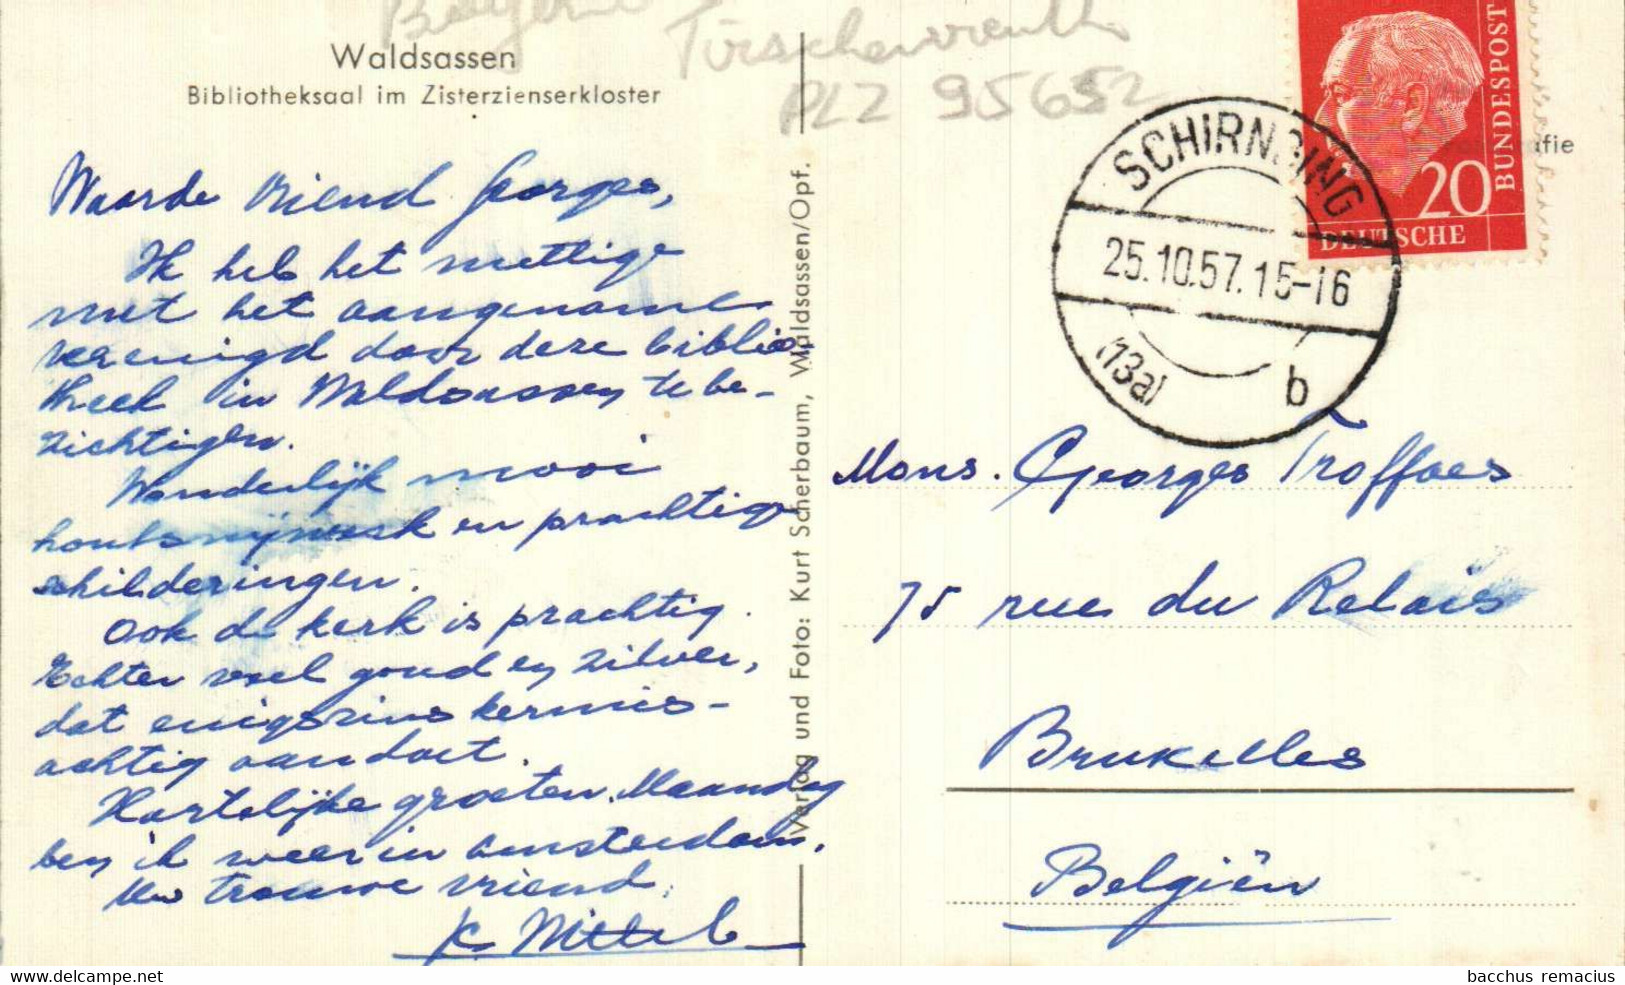 Waldsassen
Bibliotheksaal im Zisterzienserkloster
Tirschenreuth
PLZ 95652
Waarde Vriend Georges,
Ik heb het nuttige
met het aangename
verenigd door deze biblio-
theek in Waldsassen te be-
zichtigen.
Wonderlijk mooi
houtsnijwerk en prachtige
schilderingen.
Ook de kerk is prachtig.
Echter veel goud en zilver,
dat enigszins kermis-
achtig aandoet.
Hartelijke groeten. Maandag
ben ik weer in Amsterdam.
Uw trouwe vriend,
Verlag und Foto: Kurt Scherbaum, Waldsassen/Opf.
SCHIRNDING
25.10.57.15-16
(13a) b
20
DEUTSCHE
BUNDESPOST
afie
Mons. Georges Troffaes
75 rue du Relais
Bruxelles
Belgiën
bacchus remacius
www.delcampe.net